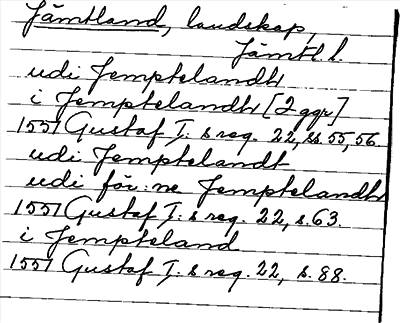 Jämtland, landskap,
Jämtl. l.
udi Jemptelandh
i Jemptelandh [2 ggr]
1551 Gustaf I:s reg. 22, ss. 55, 56.
udi Jemptelandt
udi för:ne Jemptelandh
1551 Gustaf I:s reg. 22, s. 63.
i Jempteland
1551 Gustaf I:s reg. 22, s. 88.